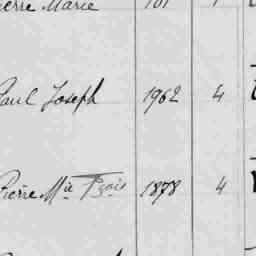 Pierre Marie
Paul Joseph 1962 4
Pierre Mie Fçois 1878 4